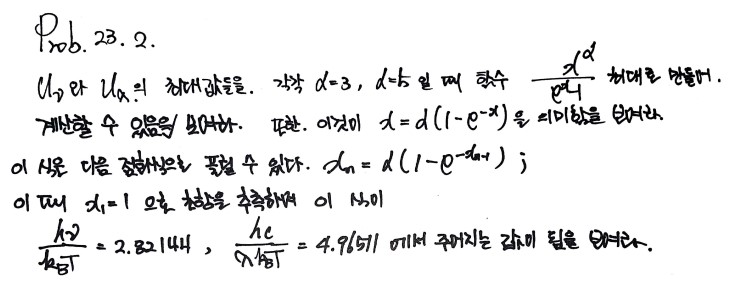 Prob. 23. 2.
U_ν 와 U_λ의 최대값들을. 각각 α=3, α=5 일 때 함수 x^α/(e^x-1) 최대로 만들어.
계산할 수 있음을 보여라. 또한. 이것이 x=α(1-e^{-x})을 의미함을 보여라
이 식은 다음 점화식으로 풀릴 수 있다. x_n = α(1-e^{-x_{n-1}}) ;
이 때 x_1=1 으로 초항을 추측하며 이 식이
hν/k_BT = 2.82144 , hc/λk_BT = 4.96511 에서 주어지는 값이 됨을 보여라.